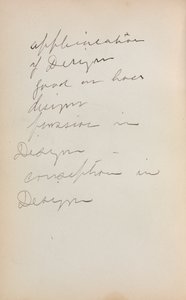 application
of Design
good or bad
design
in
Design -
conception in
Design